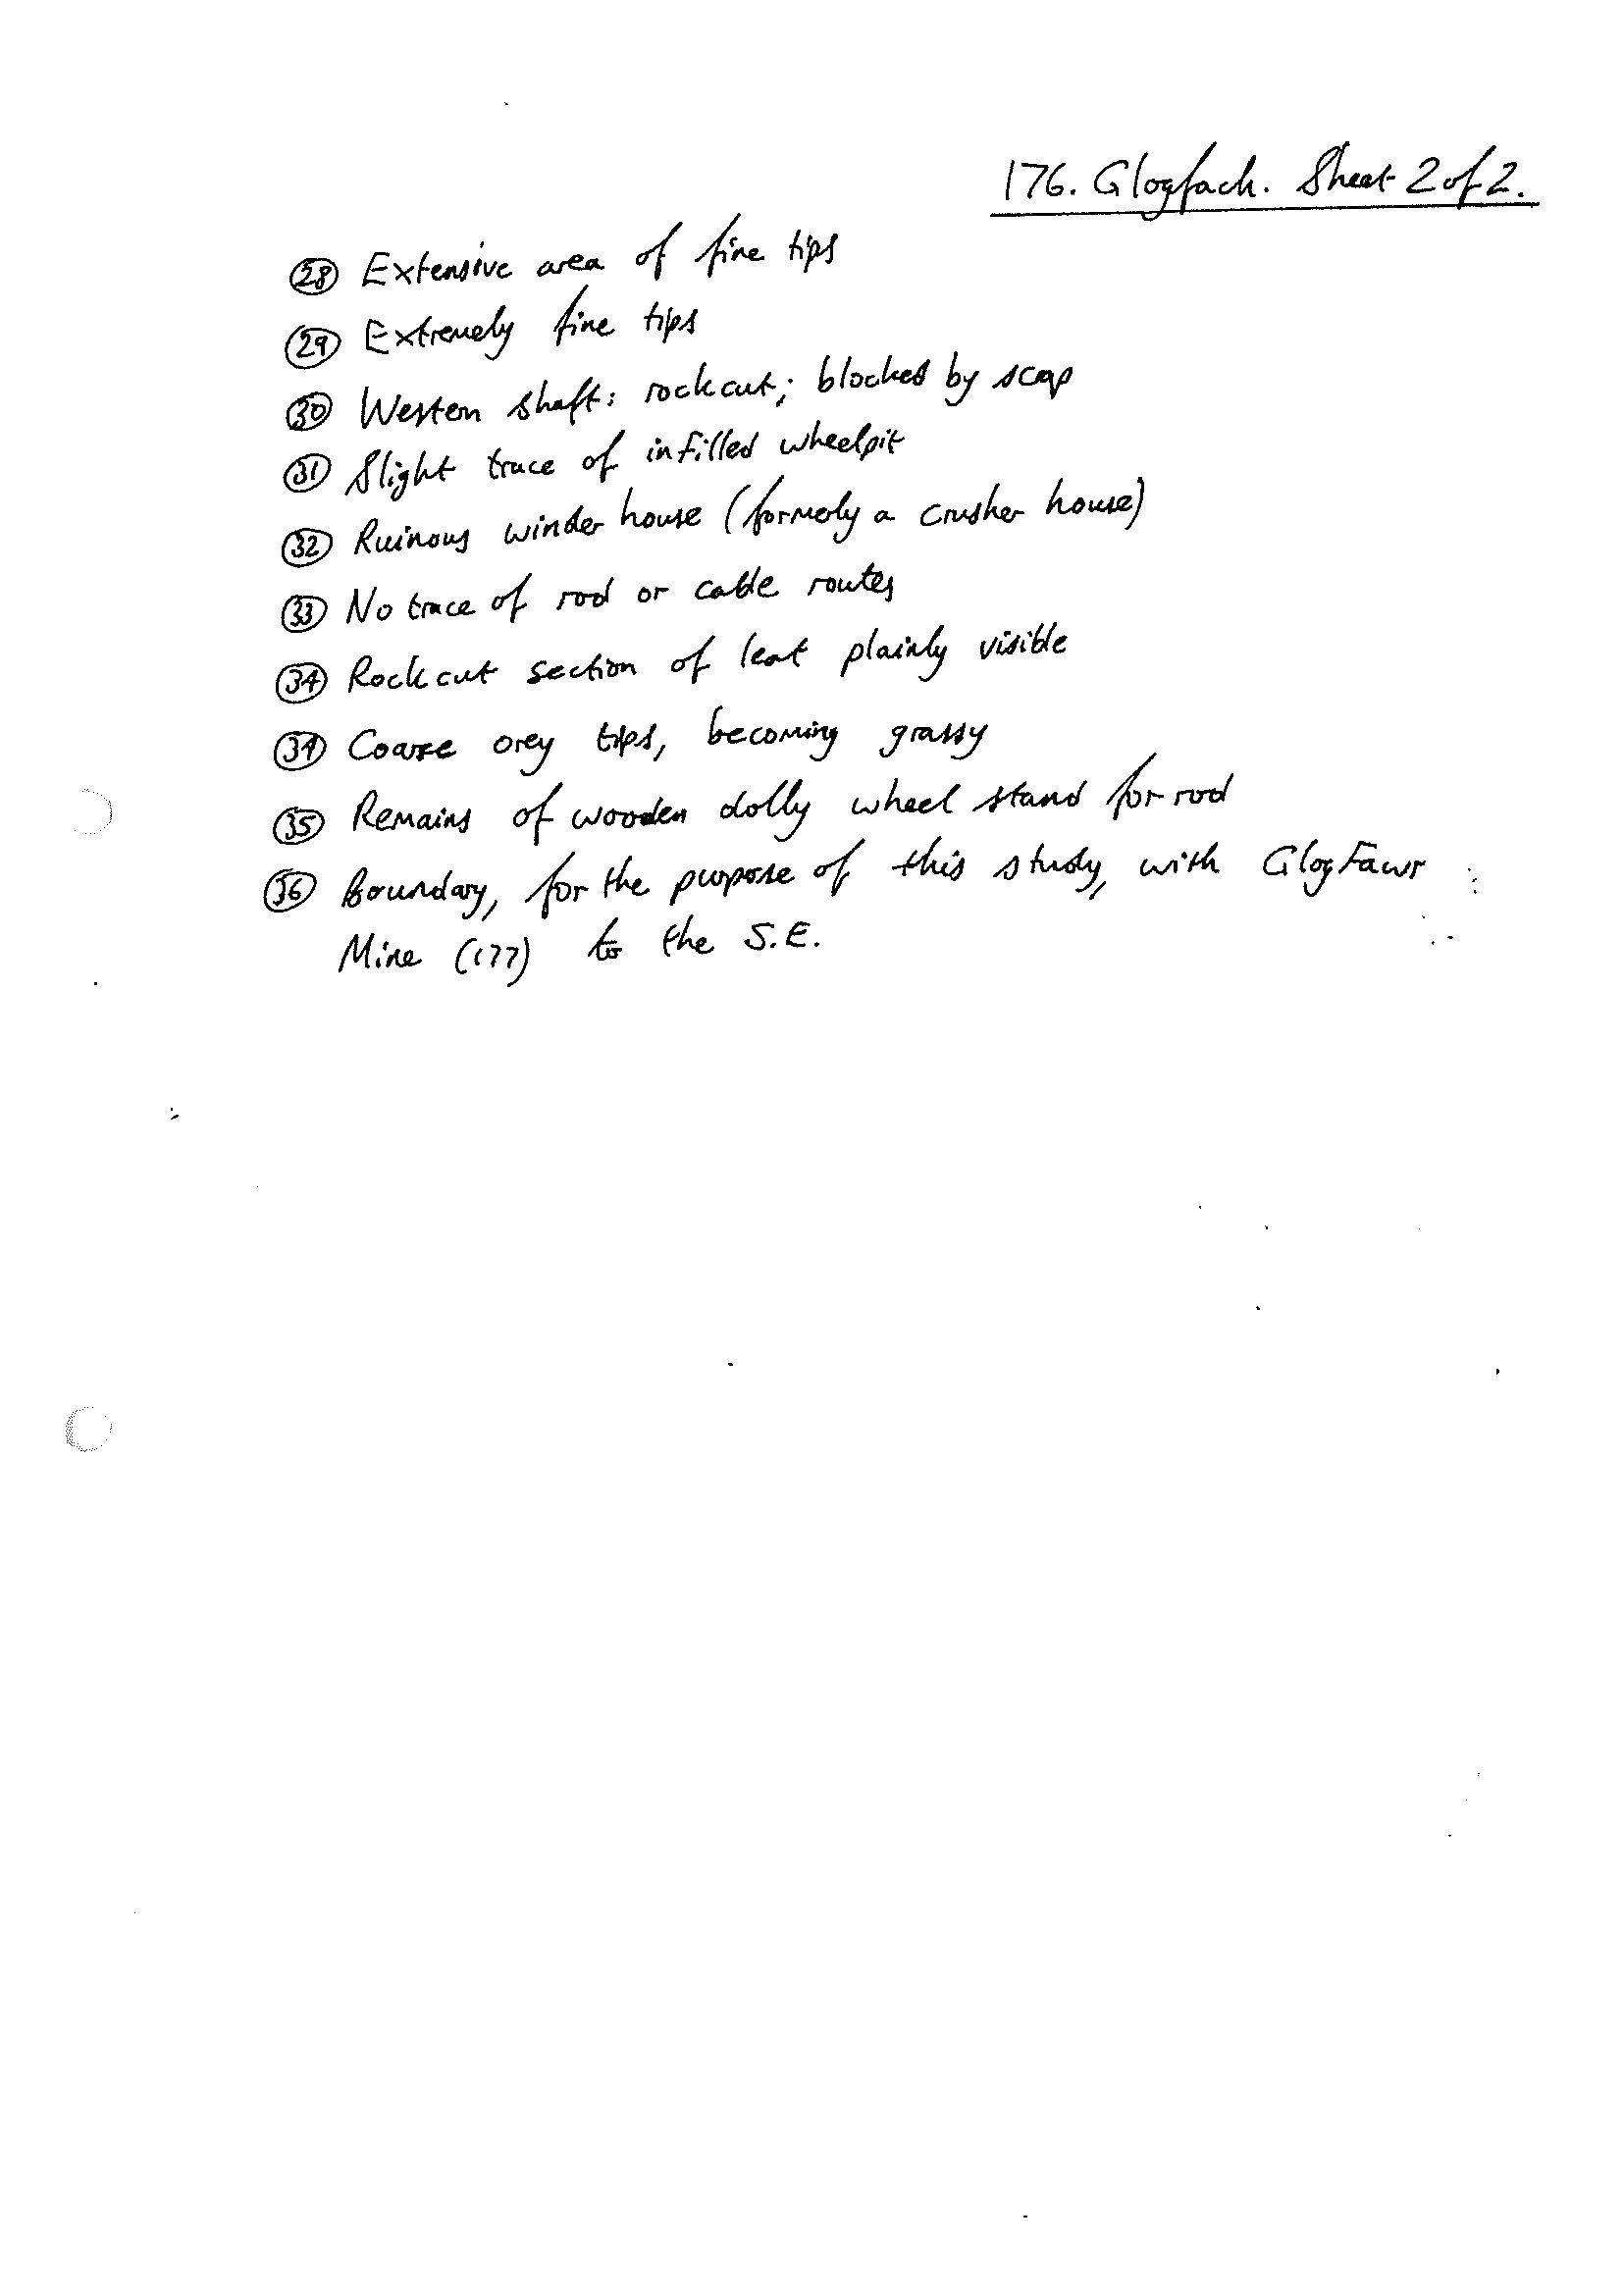 176. Glogfach. Sheet 2 of 2.
28 Extensive area of fine tips
29 Extremely fine tips
30 Western shaft: rockcut; blocked by scrap
31 Slight trace of infilled wheelpit
32 Ruinous winder house (formerly a crusher house)
33 No trace of rod or cable routes
34 Rockcut section of leat plainly visible
34 Coarse orey tips, becoming grassy
35 Remains of wooden dolly wheel stand for rod
36 Boundary, for the purpose of this study, with Glog Fawr
Mine (177) to the S.E.